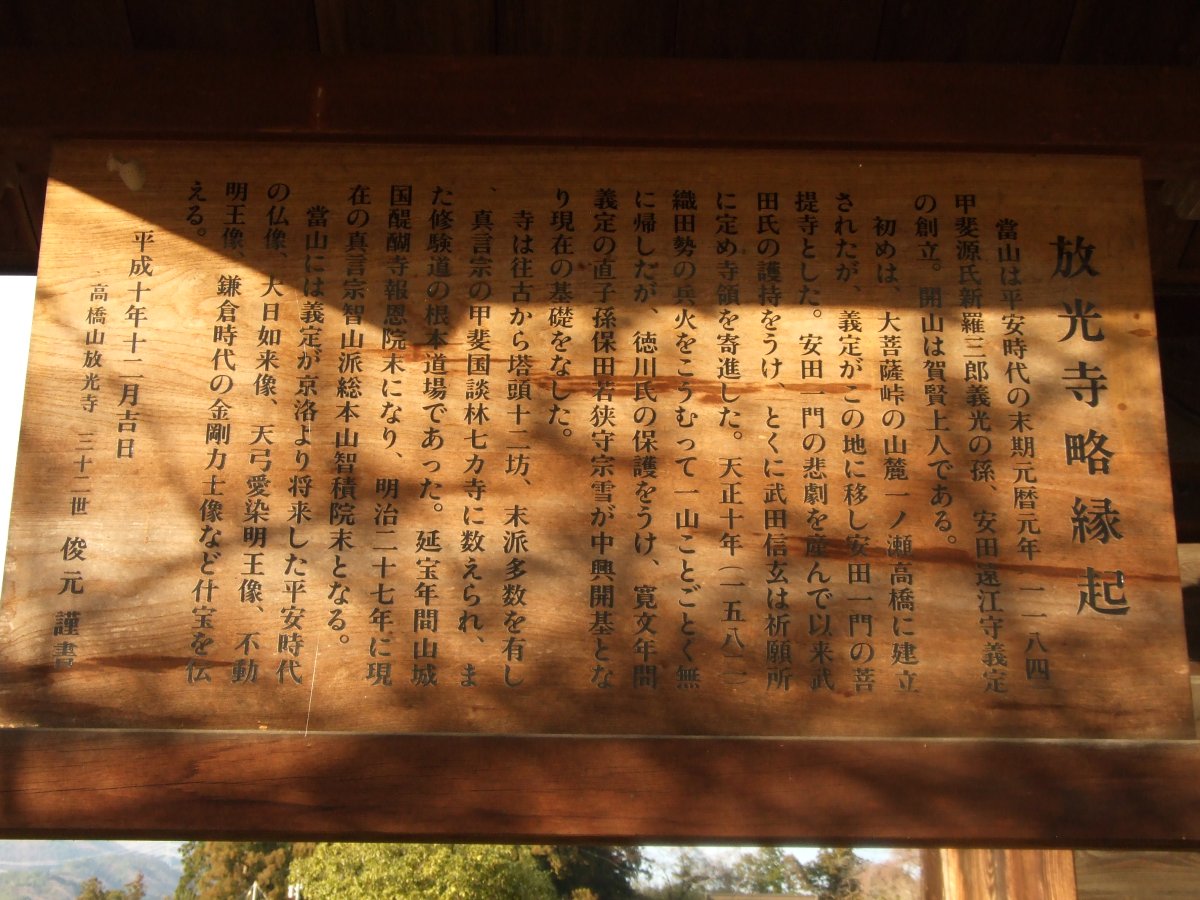 放光寺略縁起
當山は平安時代の末期元暦元年 一一八四
甲斐源氏新羅三郎義光の孫、安田遠江守義定
の創立。開山は賀賢上人である。
初めは、大菩薩峠の山麓一ノ瀬高橋に建立
されたが、義定がこの地に移し安田一門の菩
提寺とした。安田一門の悲劇を産んで以来武
田氏の護持をうけ、とくに武田信玄は祈願所
に定め寺領を寄進した。天正十年(一五八二
織田勢の兵火をこうむって一山ことごとく無
に帰したが、徳川氏の保護をうけ、寛文年間
義定の直子孫保田若狭守宗雪が中興開基とな
り現在の基礎をなした。
寺は往古から塔頭十二坊、末派多数を有し
、真言宗の甲斐国談林七カ寺に数えられ、ま
た修験道の根本道場であった。延宝年間山城
国醍醐寺報恩院末になり、明治二十七年に現
在の真言宗智山派総本山智積院末となる。
當山には義定が京洛より将来した平安時代
の仏像、大日如来像、天弓愛染明王像、不動
明王像、鎌倉時代の金剛力士像など什宝を伝
える。
平成十年十二月吉日
高橋山放光寺 三十二世 俊元 謹書